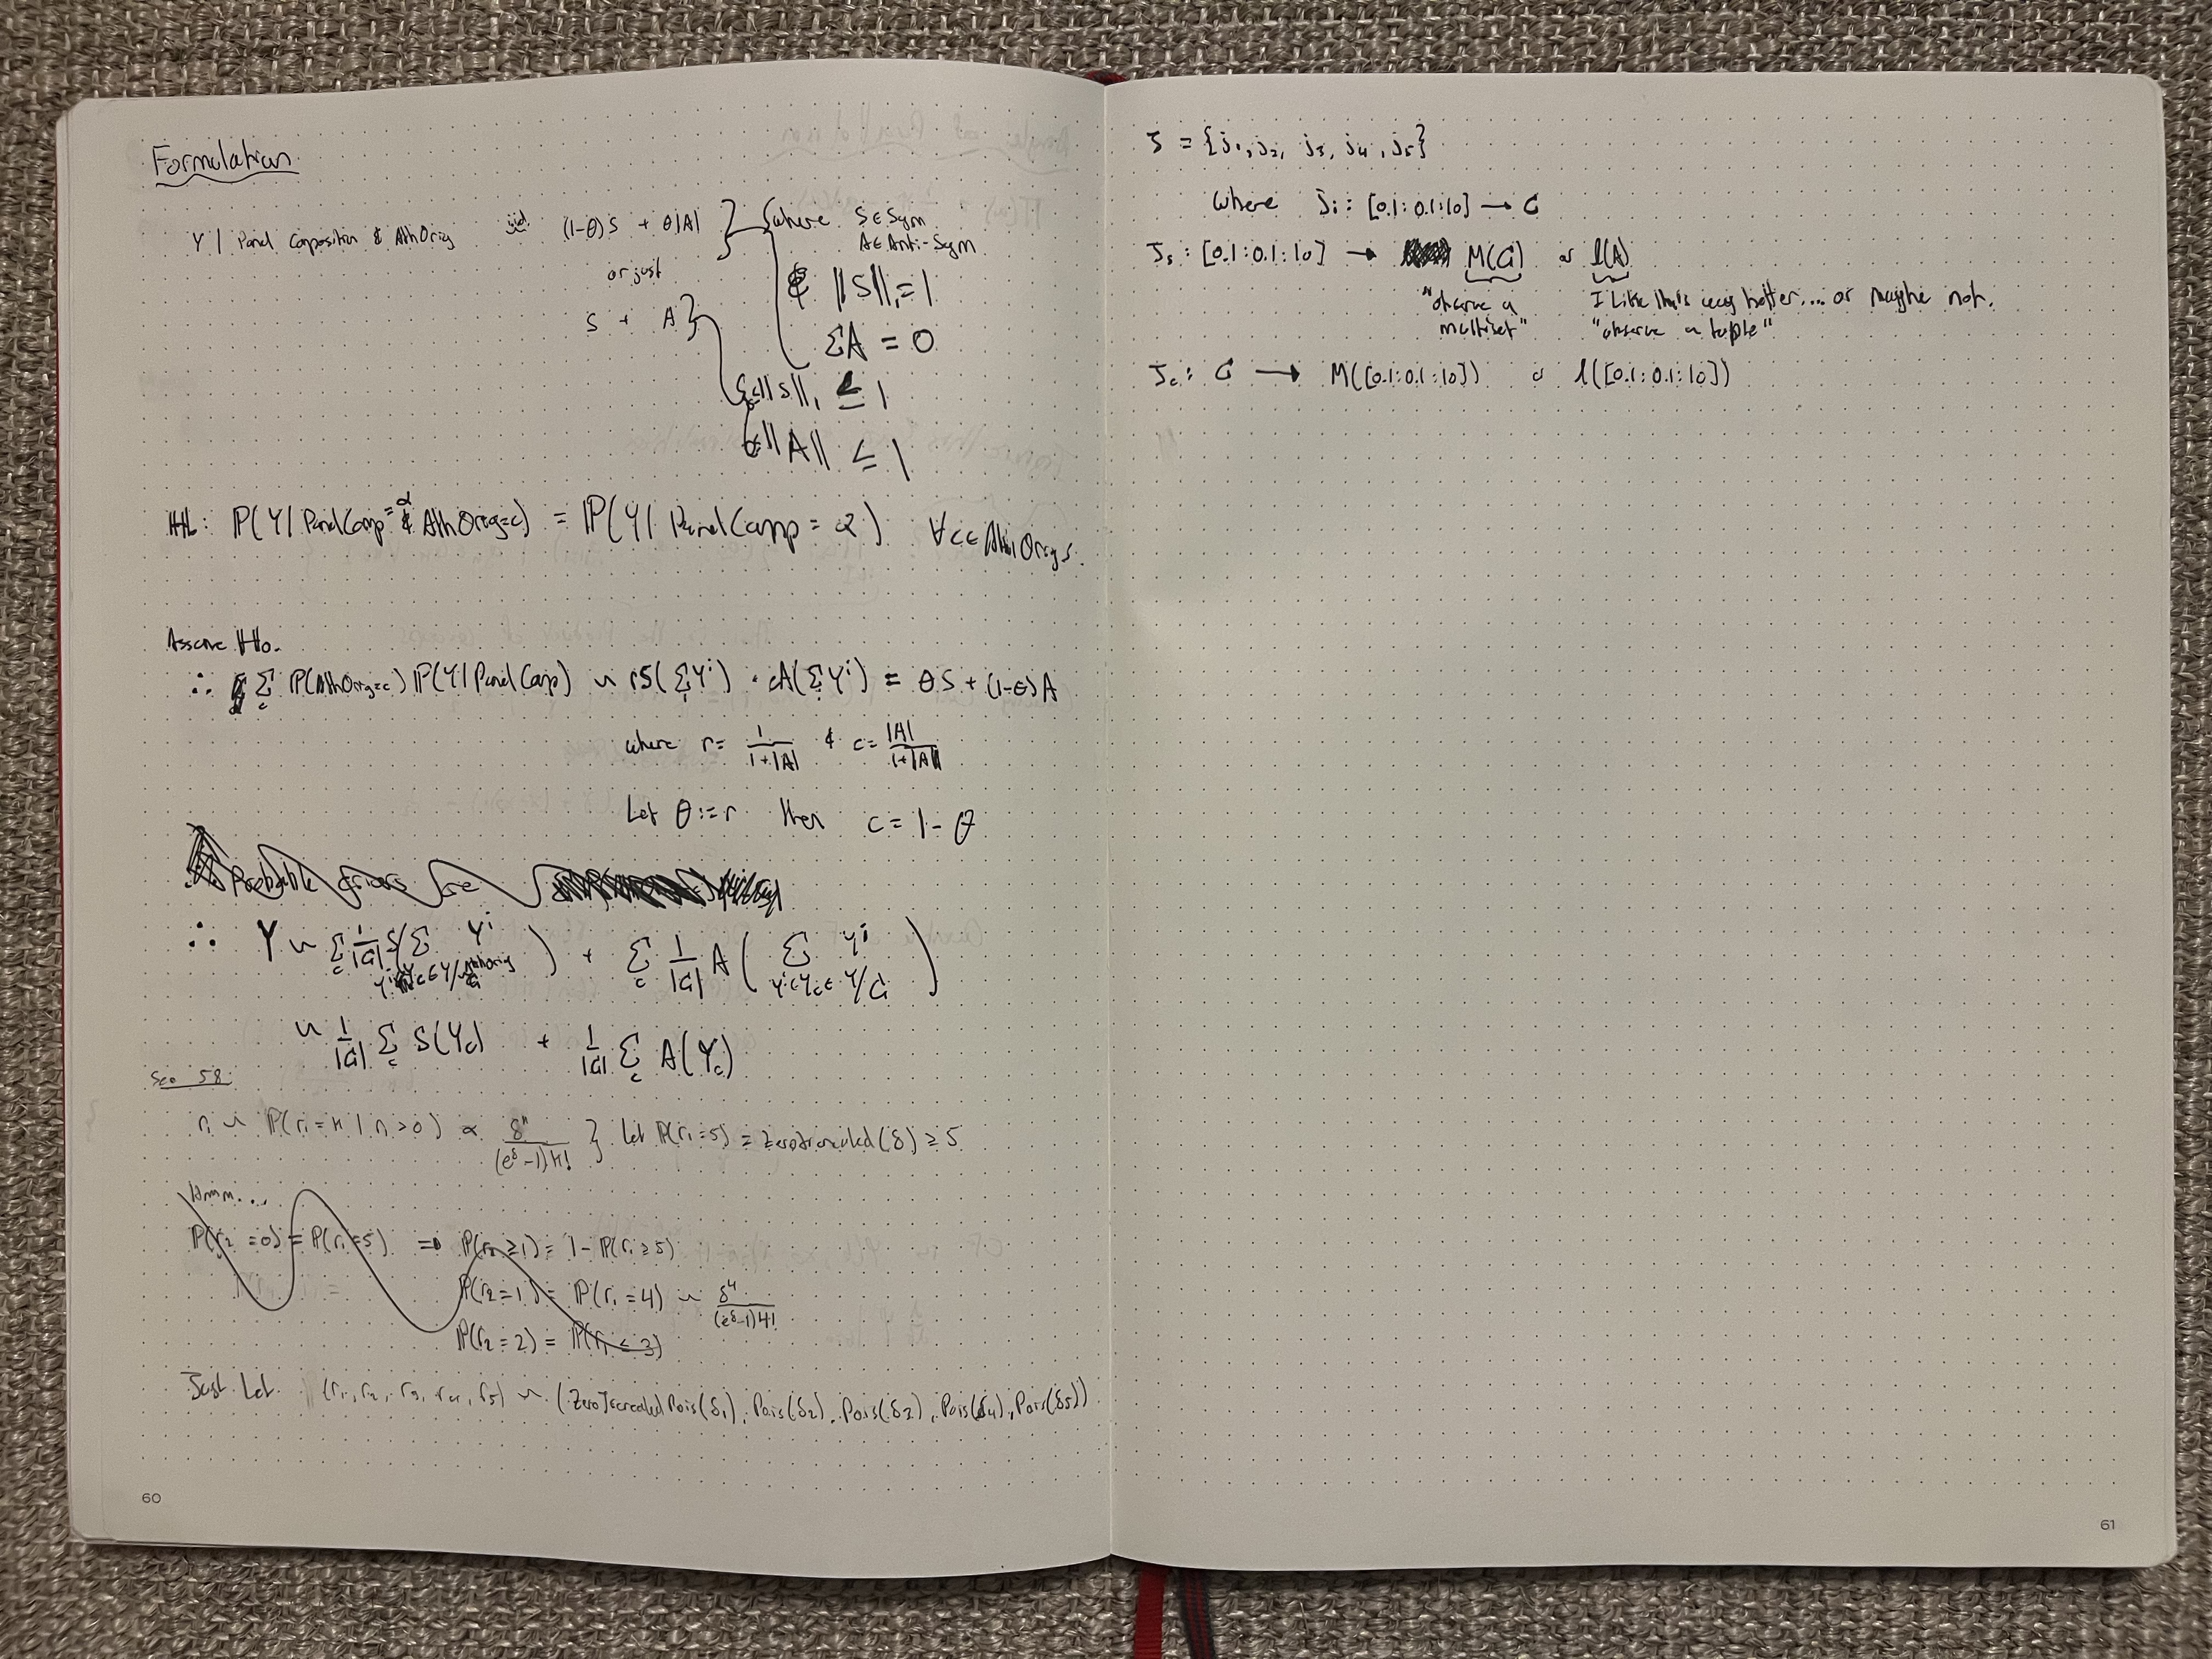 Formulation
Y | Panel Composition & AthOrig iid (1-θ)S + θ|A| } where S∈Sym
A∈Anti-Sym
or just
& ||S||₁=1
S + A } ΣA = 0
||S||₁ ≤ 1
||A|| ≤ 1
H₀: P(Y | PanelComp=α & AthOrig=c) = P(Y | PanelComp=α) ∀c∈AthOrigs.
Assume H₀.
∴ Σ_c P(AthOrig=c) P(Y | PanelComp) ~ rS(ΣYⁱ) · cA(ΣYⁱ) = θS + (1-θ)A
where r = 1/(1+|A|) & c = |A|/(1+|A|)
Let θ:=r then c = 1-θ
Probable
∴ Y ~ Σ_c 1/|G| S(Σ Yⁱ) + Σ_c 1/|G| A(Σ Yⁱ)
~ 1/|G| Σ_c S(Y_c) + 1/|G| Σ_c A(Y_c)
See 58
r₁ ~ P(r₁=n | n>0) ∝ δⁿ/((e^δ-1)n!) } Let P(r₁=5) = zerotruncated(δ) ≥ 5
Hmm...
P(r₂=0) = P(r₁=5) ⇒ P(r₂≥1) = 1 - P(r₁≥5)
P(r₂=1) = P(r₁=4) ~ δ⁴/((e^δ-1)4!)
P(r₂=2) = P(r₁<3)
Just Let (r₁, r₂, r₃, r₄, r₅) ~ (ZeroTruncatedPois(δ₁), Pois(δ₂), Pois(δ₃), Pois(δ₄), Pois(δ₅))
60
J = {j₁, j₂, j₃, j₄, j₅}
where jᵢ: [0.1:0.1:10] → G
J_s: [0.1:0.1:10] → M(G) or l(A)
"observe a multiset"
I like this way better... or maybe not.
"observe a tuple"
J_c: G → M([0.1:0.1:10]) or l([0.1:0.1:10])
61